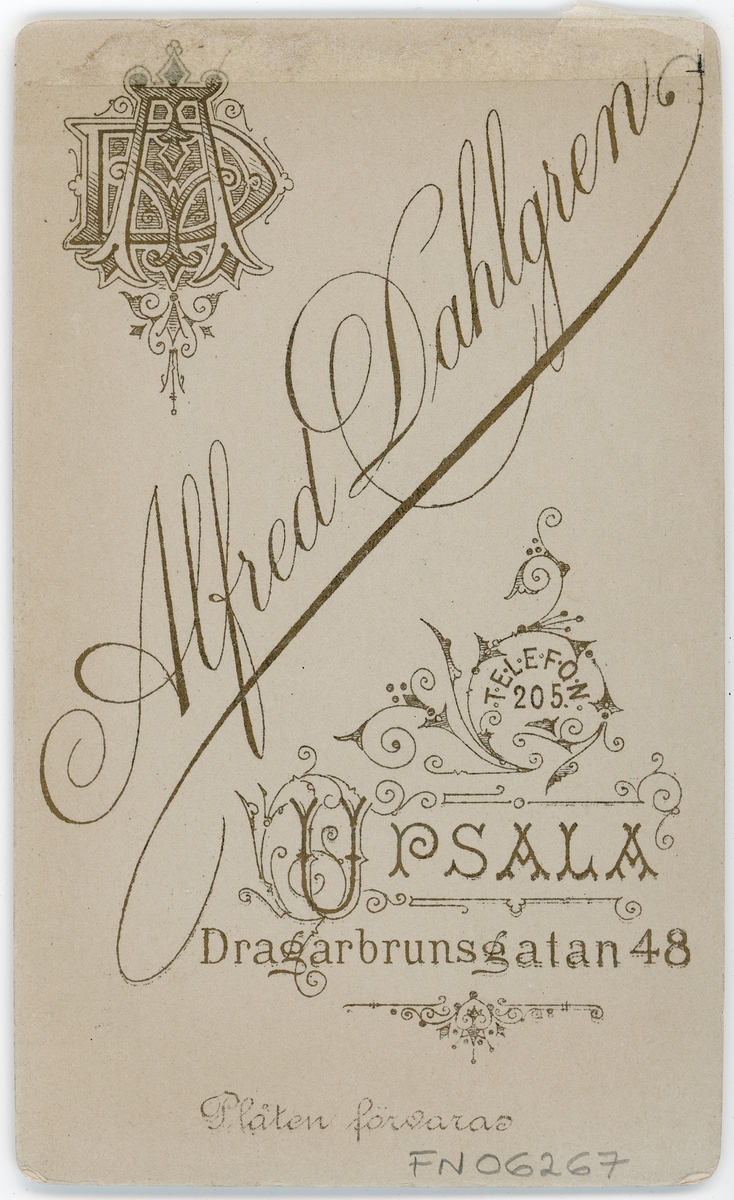 AD
Alfred Dahlgren
TELEFON
205.
UPSALA
Dragarbrunsgatan 48
Plåten förvaras
FN06267